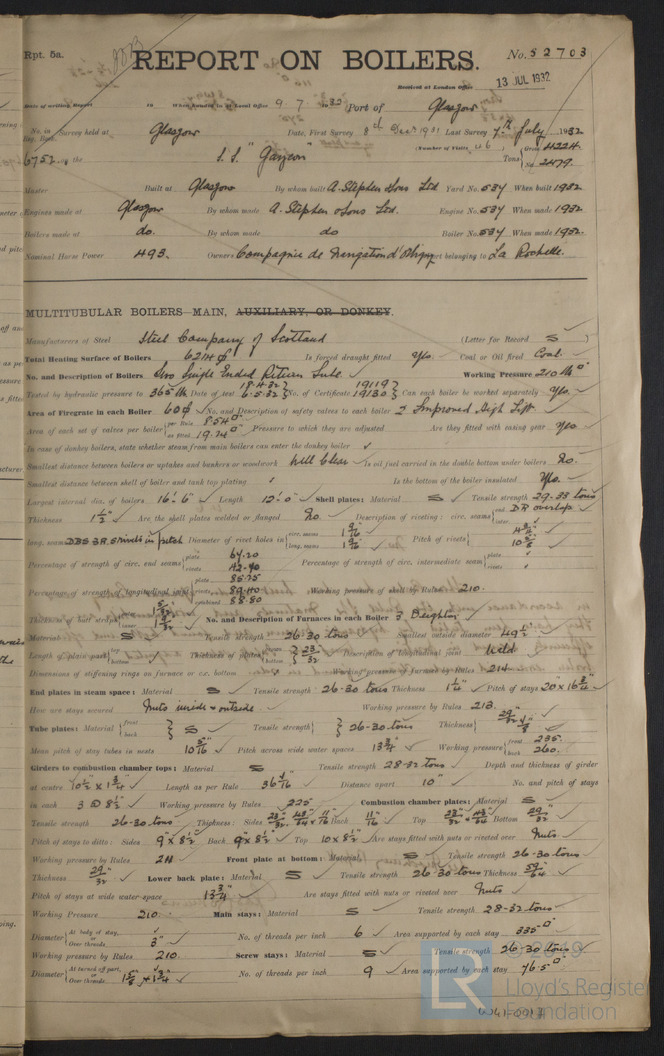 Rpt. 5a.
REPORT ON BOILERS.
No. 52703
Received at London Office 13 JUL 1932
Date of writing Report 19 When handed in at Local Office 9 7 1932 Port of Glasgow
No. in Reg. Book. Survey held at Glasgow Date, First Survey 8th Decr 1931 Last Survey 7th July 1932
6752 on the S.S. (Number of Visits 46) Tons Gross 4224
Net 2479
Master Built at Glasgow By whom built A. Stephen & Sons Ltd Yard No. 534 When built 1932
Engines made at Glasgow By whom made A. Stephen & Sons Ltd. Engine No. 534 When made 1932
Boilers made at do. By whom made do Boiler No. 534 When made 1932.
Nominal Horse Power 493. Owners Compagnie de Navigation d'Orbigny Port belonging to La Rochelle.
MULTITUBULAR BOILERS MAIN, AUXILIARY, OR DONKEY.
Manufacturers of Steel Steel Company of Scotland (Letter for Record S)
Total Heating Surface of Boilers 6214 Is forced draught fitted Yes. Coal or Oil fired Coal
No. and Description of Boilers Two Single Ended Return Tube Working Pressure 210 lb
Tested by hydraulic pressure to 365 lb Date of test 18.4.32 6.5.32 No. of Certificate 19119 19130 Can each boiler be worked separately Yes.
Area of Firegrate in each Boiler 60 No. and Description of safety valves to each boiler 2 Improved High Lift
Area of each set of valves per boiler per Rule 8.54 as fitted 19.24 Pressure to which they are adjusted Are they fitted with easing gear Yes
In case of donkey boilers, state whether steam from main boilers can enter the donkey boiler
Smallest distance between boilers or uptakes and bunkers or woodwork Well Clear Is oil fuel carried in the double bottom under boilers No.
Smallest distance between shell of boiler and tank top plating Is the bottom of the boiler insulated Yes.
Largest internal dia. of boilers 16'-6" Length 12'-0" Shell plates: Material S Tensile strength 29-33 tons
Thickness 1 1/2" Are the shell plates welded or flanged No Description of riveting: circ. seams end DR overlap
long. seams DBS 3R 5 rivets in pitch Diameter of rivet holes in circ. seams 1 9/16 long. seams 1 9/16 Pitch of rivets
10 5/8
Percentage of strength of circ. end seams plate 64.20 rivets 42.40 Percentage of strength of circ. intermediate seam plate rivets
Percentage of strength of longitudinal seam plate 85.75 rivets 89.40 combined 88.80 Working pressure of shell by Rules 210.
Thickness of butt straps No. and Description of Furnaces in each Boiler 3 Deighton
Material S Tensile strength 26-30 tons Smallest outside diameter 49 1/2"
Length of plain part top bottom Thickness of plates 23/32 Description of longitudinal joint Weld
Dimensions of stiffening rings on furnace or c.c. bottom Working pressure of furnace by Rules 214
End plates in steam space: Material S Tensile strength 26-30 tons Thickness 1 1/4" Pitch of stays 20" x 16 3/4"
How are stays secured Nuts inside & outside Working pressure by Rules 213.
Tube plates: Material front back S Tensile strength 26-30 tons Thickness
Mean pitch of stay tubes in nests 10 5/16 Pitch across wide water spaces 13 3/4" Working pressure front 235. back 260.
Girders to combustion chamber tops: Material S Tensile strength 28-32 tons Depth and thickness of girder
at centre 10 1/2" x 1 3/4" Length as per Rule Distance apart 10" No. and pitch of stays
in each 3 @ 8 1/2" Working pressure by Rules 225 Combustion chamber plates: Material S
Tensile strength 26-30 tons Thickness: Sides Back 11/16" Top Bottom 29/32"
Pitch of stays to ditto: Sides 9" x 8 1/2" Back 9" x 8 1/2" Top 10 x 8 1/2" Are stays fitted with nuts or riveted over Nuts.
Working pressure by Rules Front plate at bottom: Material S Tensile strength 26-30 tons
Thickness 29/32" Lower back plate: Material S Tensile strength 26-30 tons Thickness
Pitch of stays at wide water space 13 3/4" Are stays fitted with nuts or riveted over Nuts
Working Pressure 210. Main stays: Material S Tensile strength 28-32 tons
Diameter At body of stay, or Over threads 3" No. of threads per inch 6 Area supported by each stay 335
Working pressure by Rules 210 Screw stays: Material S Tensile strength 26-30 tons
Diameter At turned off part, or Over threads 1 5/8" & 1 3/4" No. of threads per inch 9 Area supported by each stay 76.5
© 2019
LR Lloyd's Register
Foundation